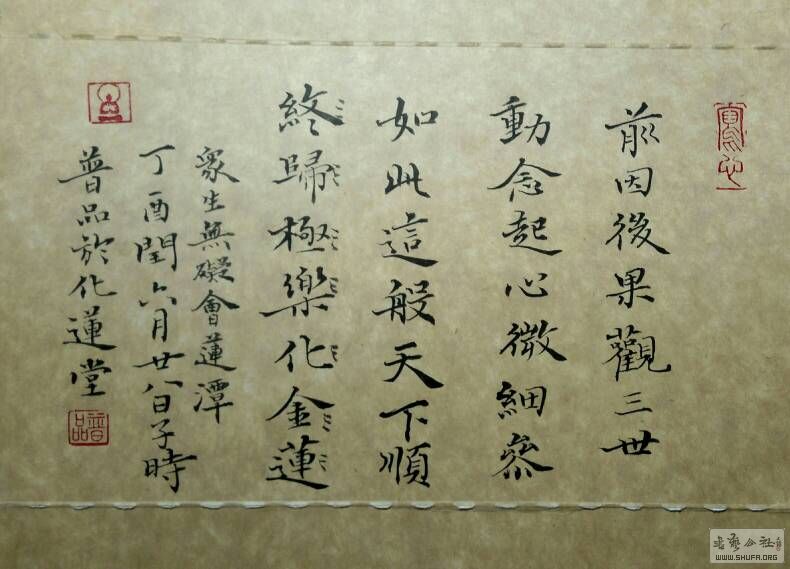 前因後果觀三世
動念起心微細參
如此這般天下順
終歸極樂化金蓮
眾生無礙會蓮潭
丁酉閏六月廿八日子時
普品於化蓮堂
普品
WWW.SHUFA.ORG